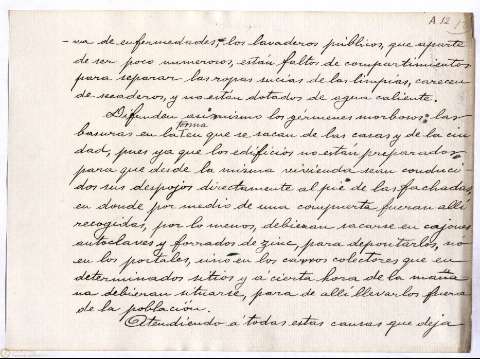 A 12
-va de enfermedades, los lavaderos públicos, que aparte
de ser poco numerosos, están faltos de compartimientos
para separar las ropas sucias de las limpias, carecen
de secaderos, y no están dotados de agua caliente.
Difunden asimismo los gérmenes morbosos, las
basuras en la forma en que se sacan de las casas y de la ciu
dad, pues ya que los edificios no están preparados
para que desde la misma vivienda sean conduci-
dos sus despojos directamente al pié de las fachadas,
en donde por medio de una compuerta fueran alli
recogidas, por lo menos, debieran sacarse en cajones
autoclaves y forrados de zinc, para depositarlos, no
en los portales, sino en los carros colectores que en
determinados sitios y á cierta hora de la maña
na debieran situarse, para de alli llevarlos fuera
de la población.
Atendiendo á todas estas causas que deja